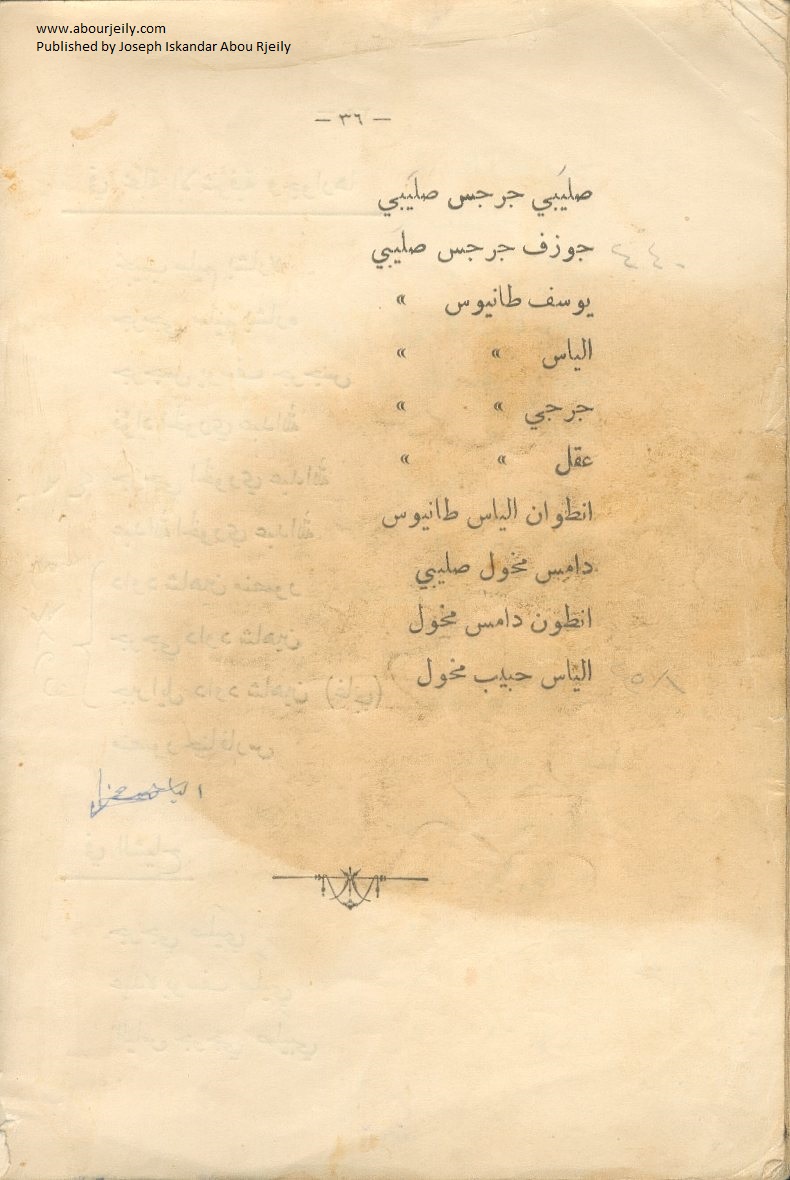 www.abourjeily.com
Published by Joseph Iskandar Abou Rjeily
— ٣٦ —
صليَبي جرجس صليَبي
جوزف جرجس صليَبي
يوسف طانيوس »
الياس » »
جرجي » »
عقل » »
انطوان الياس طانيوس
دامس مخول صليبي
انطون دامس مخول
الياس حبيب مخول